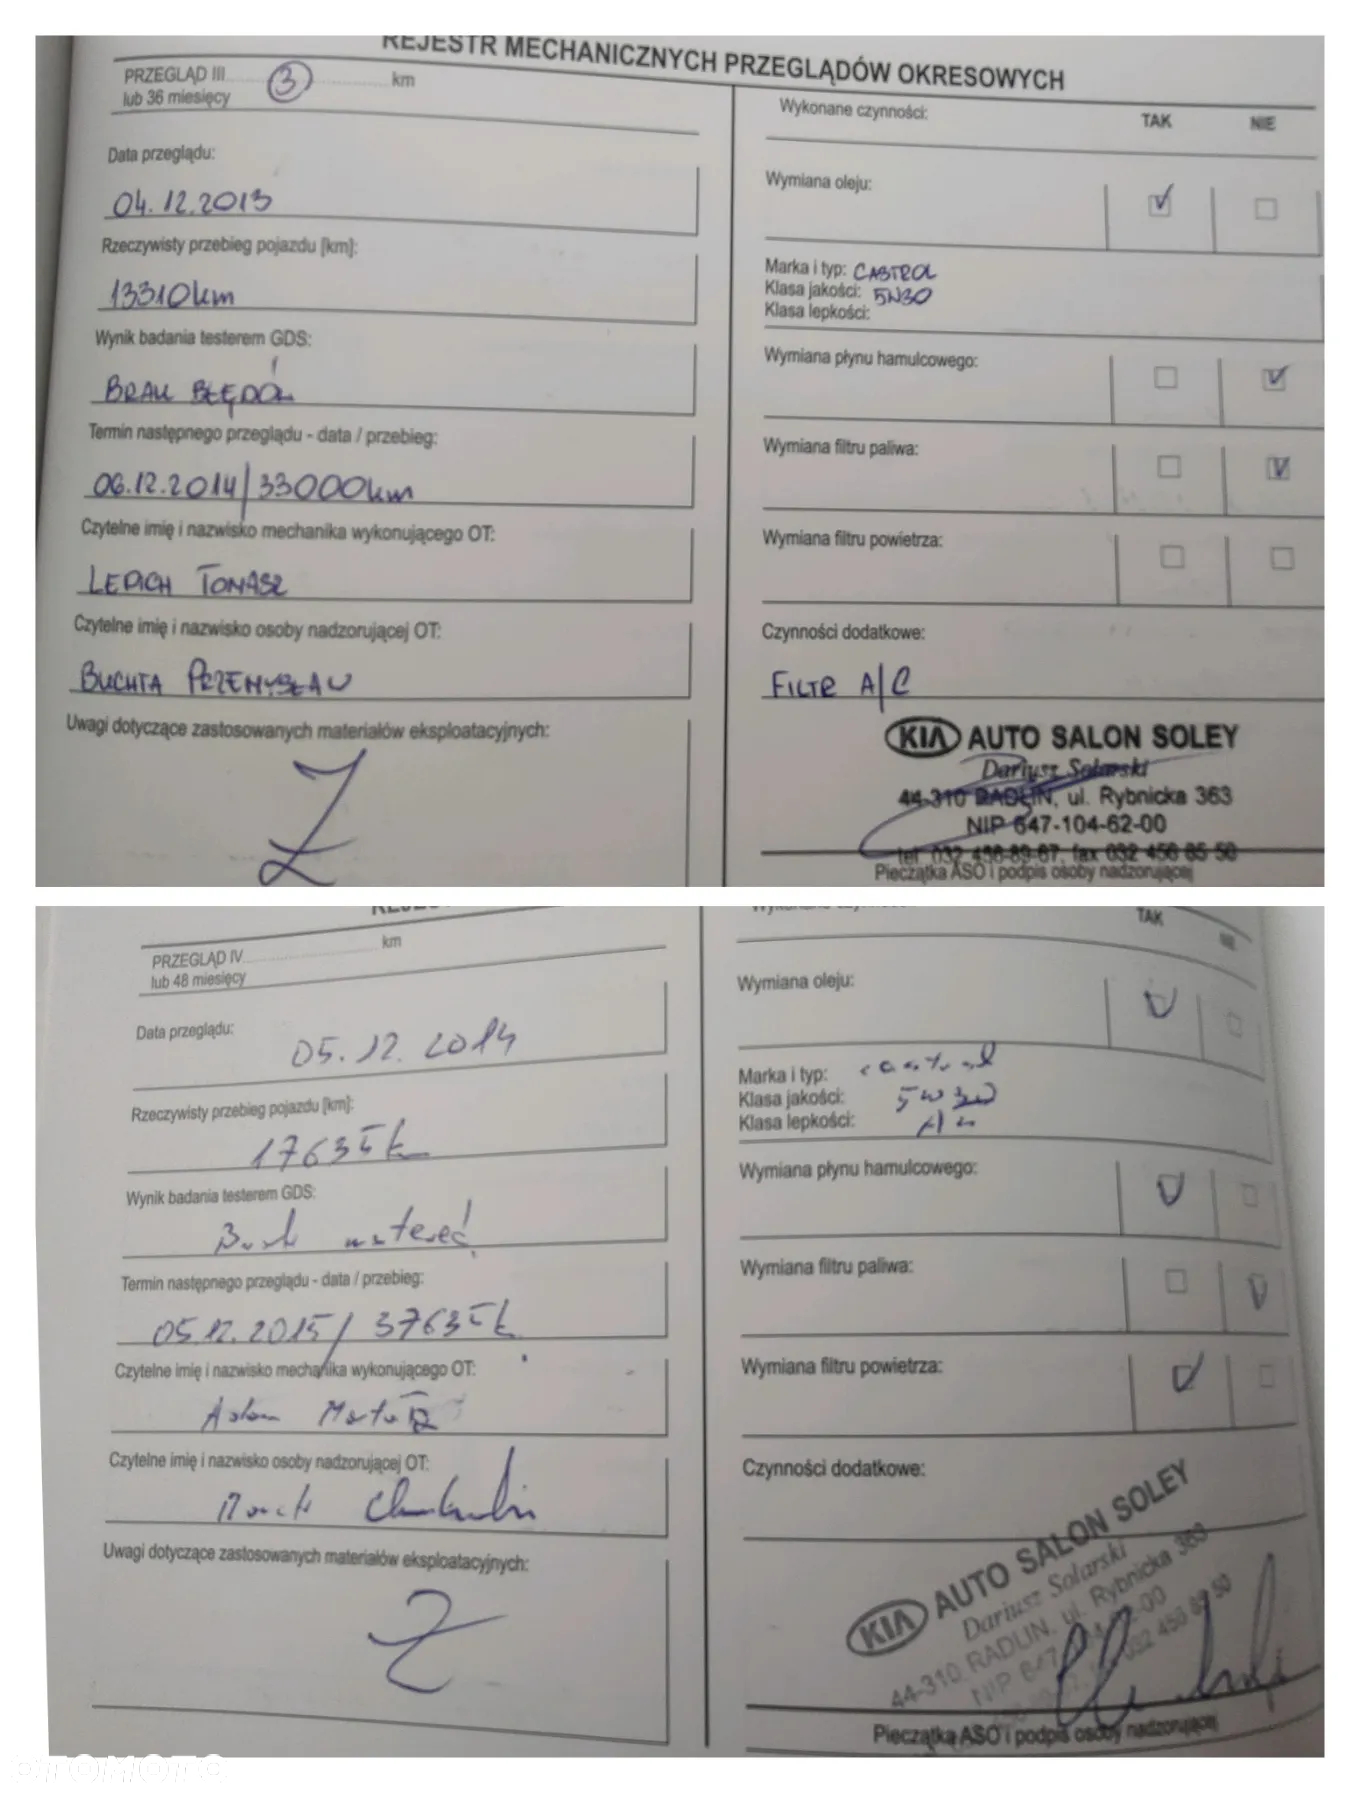 REJESTR MECHANICZNYCH PRZEGLĄDÓW OKRESOWYCH
PRZEGLĄD III 3 km
lub 36 miesięcy
Data przeglądu:
04.12.2013
Rzeczywisty przebieg pojazdu [km]:
13310km
Wynik badania testerem GDS:
BRAK BŁĘDÓW
Termin następnego przeglądu - data / przebieg:
06.12.2014/33000km
Czytelne imię i nazwisko mechanika wykonującego OT:
TOMASZ
Czytelne imię i nazwisko osoby nadzorującej OT:
BUCHTA PRZEMYSŁAW
Uwagi dotyczące zastosowanych materiałów eksploatacyjnych:
Wykonane czynności: TAK NIE
Wymiana oleju:
Marka i typ: CASTROL
Klasa jakości: 5W30
Klasa lepkości:
Wymiana płynu hamulcowego:
Wymiana filtru paliwa:
Wymiana filtru powietrza:
Czynności dodatkowe:
FILTR A/C
KIA AUTO SALON SOLEY
Dariusz Solarski
44-310 RADLIN, ul. Rybnicka 363
NIP 647-104-62-00
tel. 032 456-89-67, fax 032 456 85 50
Pieczątka ASO i podpis osoby nadzorującej
PRZEGLĄD IV km
lub 48 miesięcy
Data przeglądu:
05.12.2014
Rzeczywisty przebieg pojazdu [km]:
17635k
Wynik badania testerem GDS:
Brak usterek!
Termin następnego przeglądu - data / przebieg:
05.12.2015/37635k
Czytelne imię i nazwisko mechanika wykonującego OT:
Adam
Czytelne imię i nazwisko osoby nadzorującej OT:
Uwagi dotyczące zastosowanych materiałów eksploatacyjnych:
Wykonane czynności: TAK NIE
Wymiana oleju:
Marka i typ: castrol
Klasa jakości: 5w30
Klasa lepkości:
Wymiana płynu hamulcowego:
Wymiana filtru paliwa:
Wymiana filtru powietrza:
Czynności dodatkowe:
KIA AUTO SALON SOLEY
Dariusz Solarski
44-310 RADLIN, ul. Rybnicka 363
Pieczątka ASO i podpis osoby nadzorującej
OTOMOTO